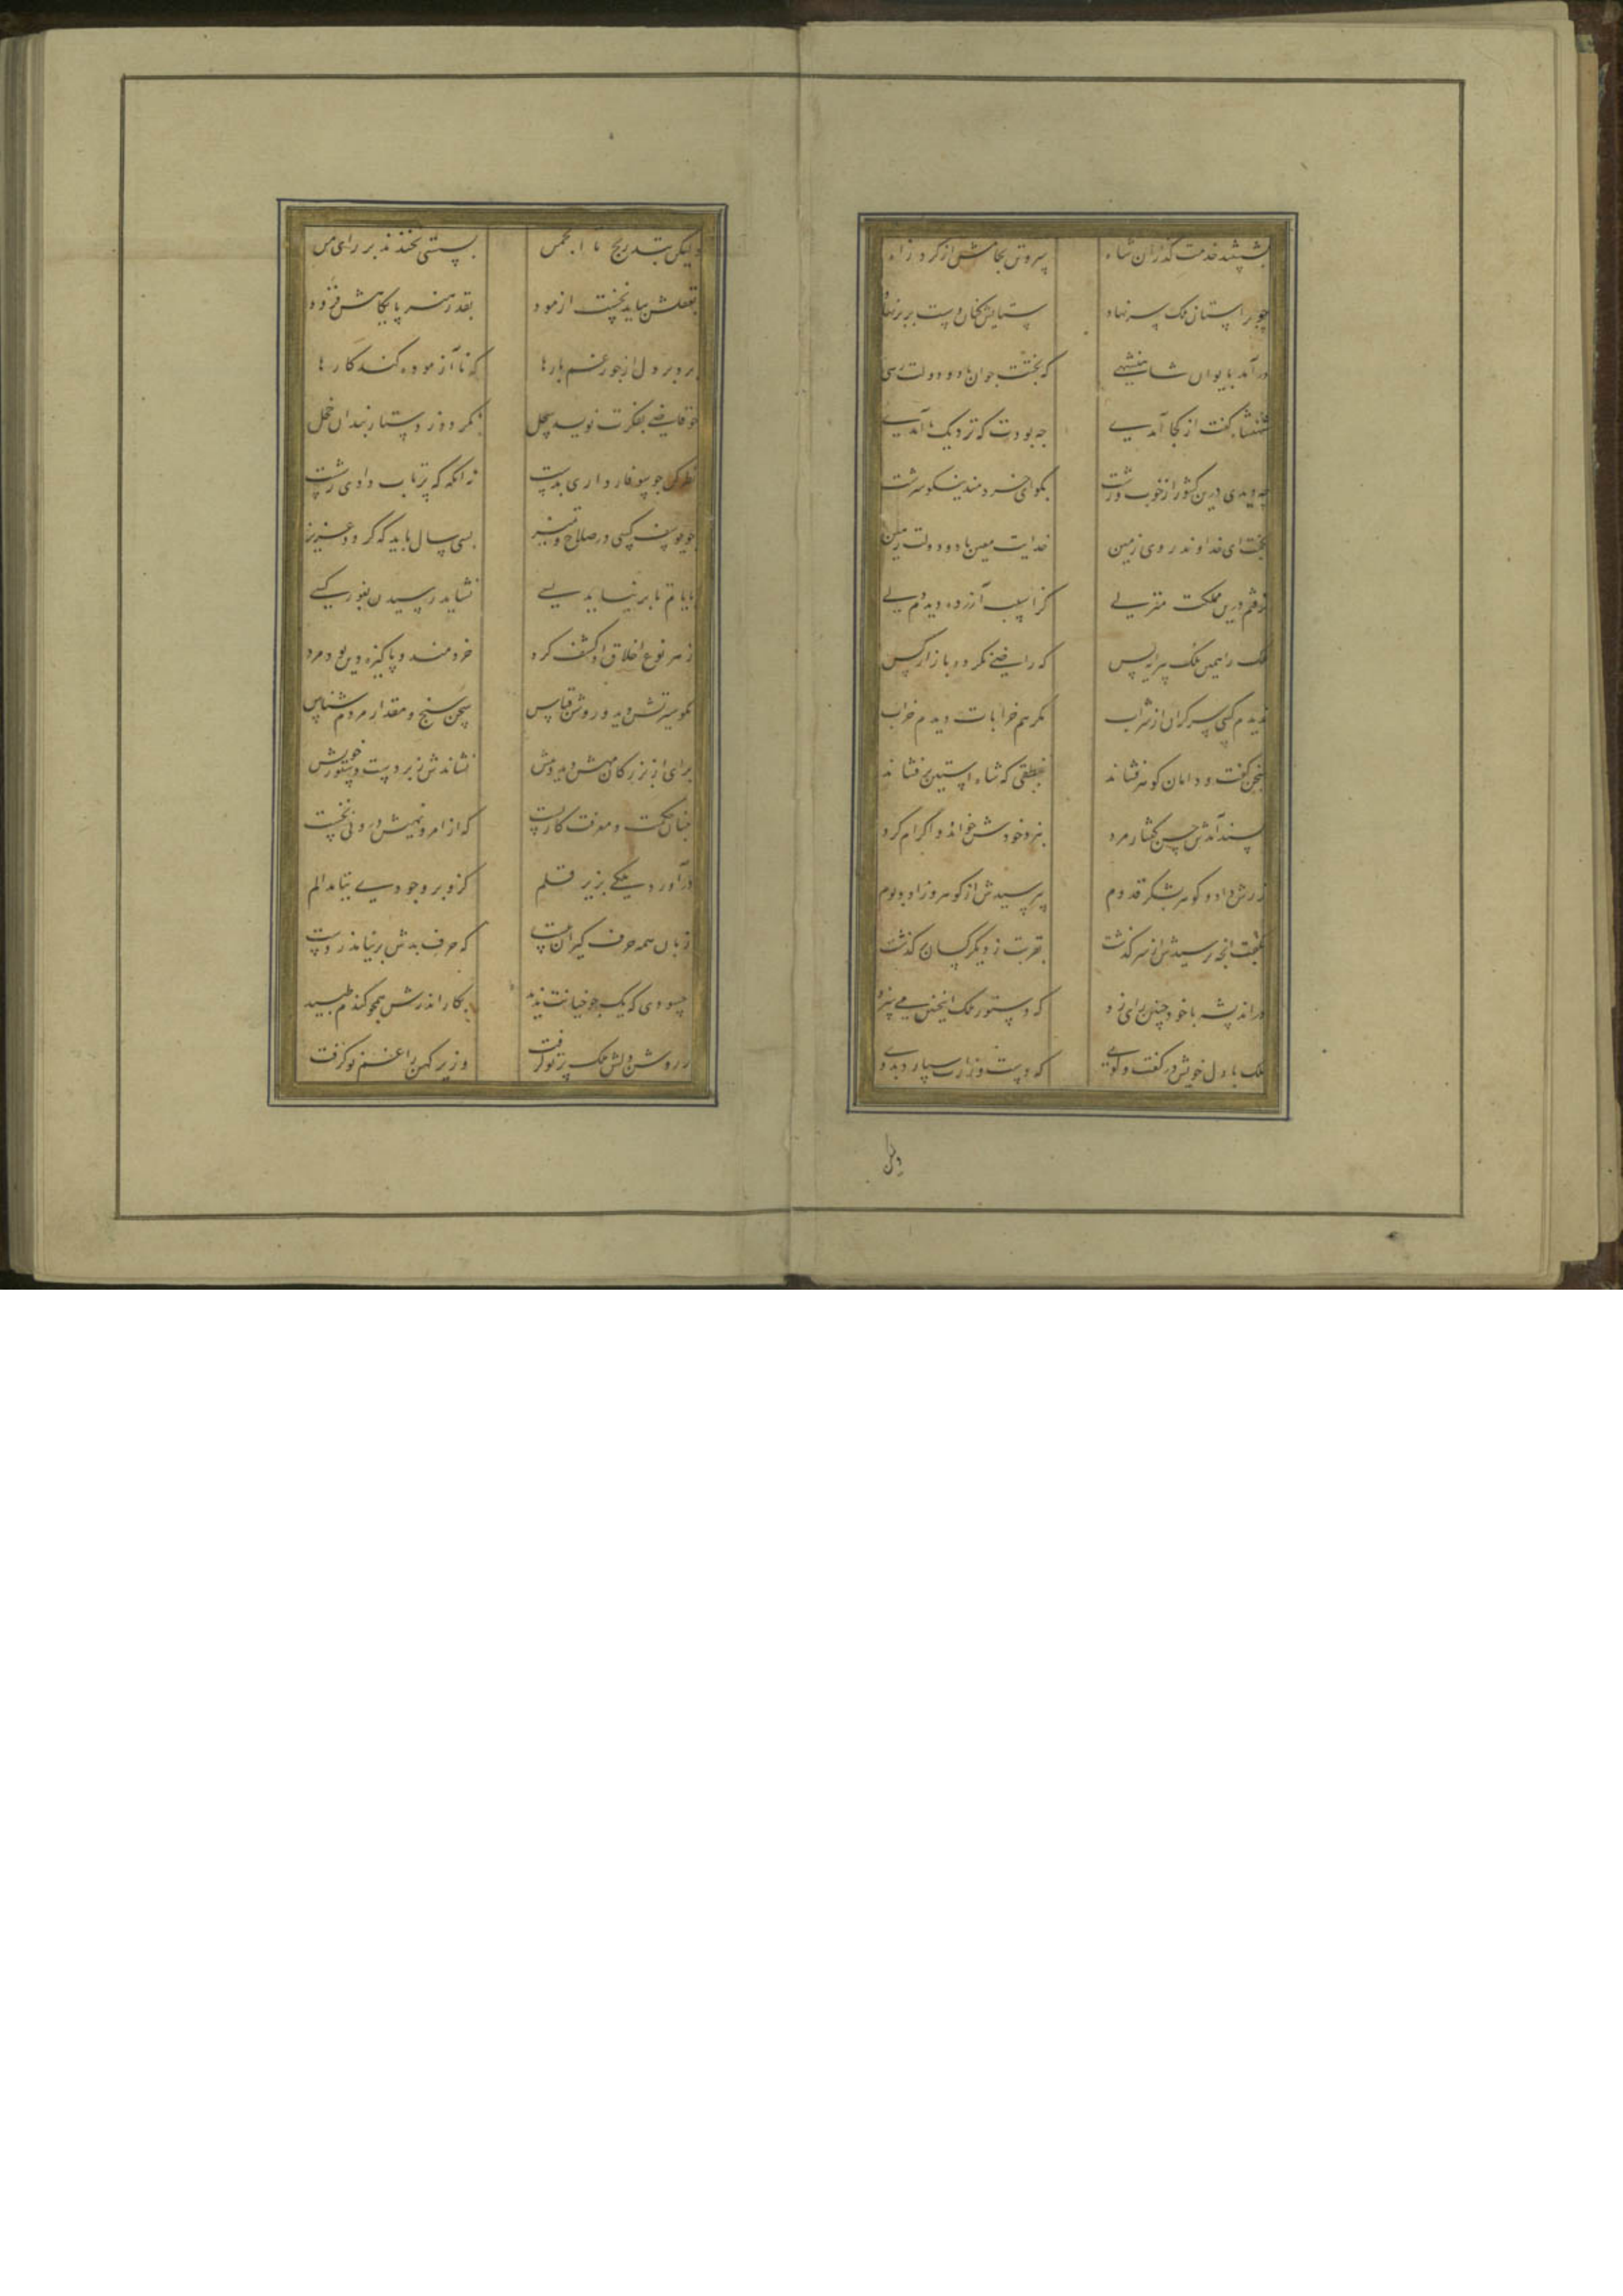 بشستند خدمت گذاران شاه سر و تن بحامش از گرد راه
چو بر استان ملک سر نهاد ستایش کنان دست بر بر نهاد
درآمد بایوان شاهنشهی که بختت جوان باد و دولت رهی
شهنشاه گفت از کجا آمدی چه بودت که نزدیک ما آمدی
چه دیدی درین کشور از خوب و زشت بگو ای خردمند نیکو سرشت
بگفت ای خداوند روی زمین خدایت معین باد و دولت قرین
نرفتم درین مملکت منزلی کز اسیب آزرده دیدم دلی
ملک را همین ملک پیرایه بس که راضی نگردد بازار کس
ندیدم کسی سرگران از شراب مگر هم خرابات دیدم خراب
سخن گفت و دامان گوهر فشاند بنطقی که شاه استین برفشاند
پسند آمدش حسن گفتار مرد بنزد خودش خواند و اکرام کرد
زرش داد و گوهر بشکر قدوم بپرسیدش از گوهر و زاد و بوم
بگفت انچه پرسیدش از سرگذشت بقربت ز دیگر کسان برگذشت
در اندیشه با خود چنین رای زد که دستور ملک اینچنین می سزد
ملک با دل خویش در گفت و گوی که دست وزارت سپارد بدوی
ولیکن
ولیکن بتدریج تا انجمن بسستی نخندند بر رای من
بعقلش بباید نخست ازمود بقدر هنر پایگاهش فزود
برد بر دل از جور غم بارها که نا آزموده کند کارها
چو قاضی بفکرت نویسد سجل نگردد ز دستاربندان خجل
نظر کن چو سوفار داری بدست نه انگه که پرتاب دادی ز شست
چو یوسف کسی در صلاح و تمیز بسی سال باید که گردد عزیز
بایام تا بر نیاید بسی نشاید رسیدن بغور کسی
ز هر نوع اخلاق او کشف کرد خردمند و پاکیزه دین بود مرد
نکو سیرتش دید و روشن قیاس سخن سنج و مقدار مردم شناس
برای از بزرگان مهش دید و بیش نشاندش زبر دست دستور خویش
چنان حکمت و معرفت کار بست که از امر و نهیش درونی نخست
درآورد ملکی بزیر قلم کزو بر وجودی نیامد الم
زبان همه حرف گیران ببست که حرف بدش بر نیامد ز دست
حسودی که یک جو خیانت ندید بکار اندرش همچو گندم طپید
ز روشن دلش ملک پرتو گرفت وزیر کهن را غم نو گرفت